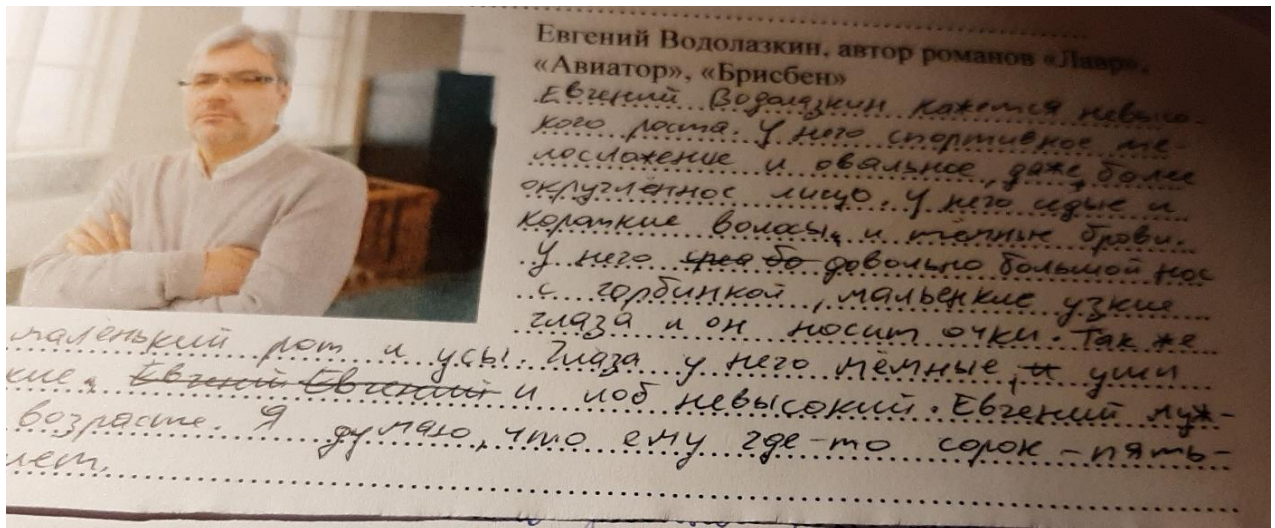 Евгений Водолазкин, автор романов «Лавр»,
«Авиатор», «Брисбен»
Евгений Водолазкин кажется невысо-
кого роста. У него спортивное те-
лосложение и овальное, даже более
округлённое лицо. У него седые и
короткие волосы, и тёмные брови.
У него довольно большой нос
с горбинкой, маленькие узкие
глаза и он носит очки. Так же
маленький рот и усы. Глаза у него тёмные, уши
кие. Евгений Евгений и лоб невысокий. Евгений муж-
возрасте. Я думаю, что ему где-то сорок-пять-
лет.